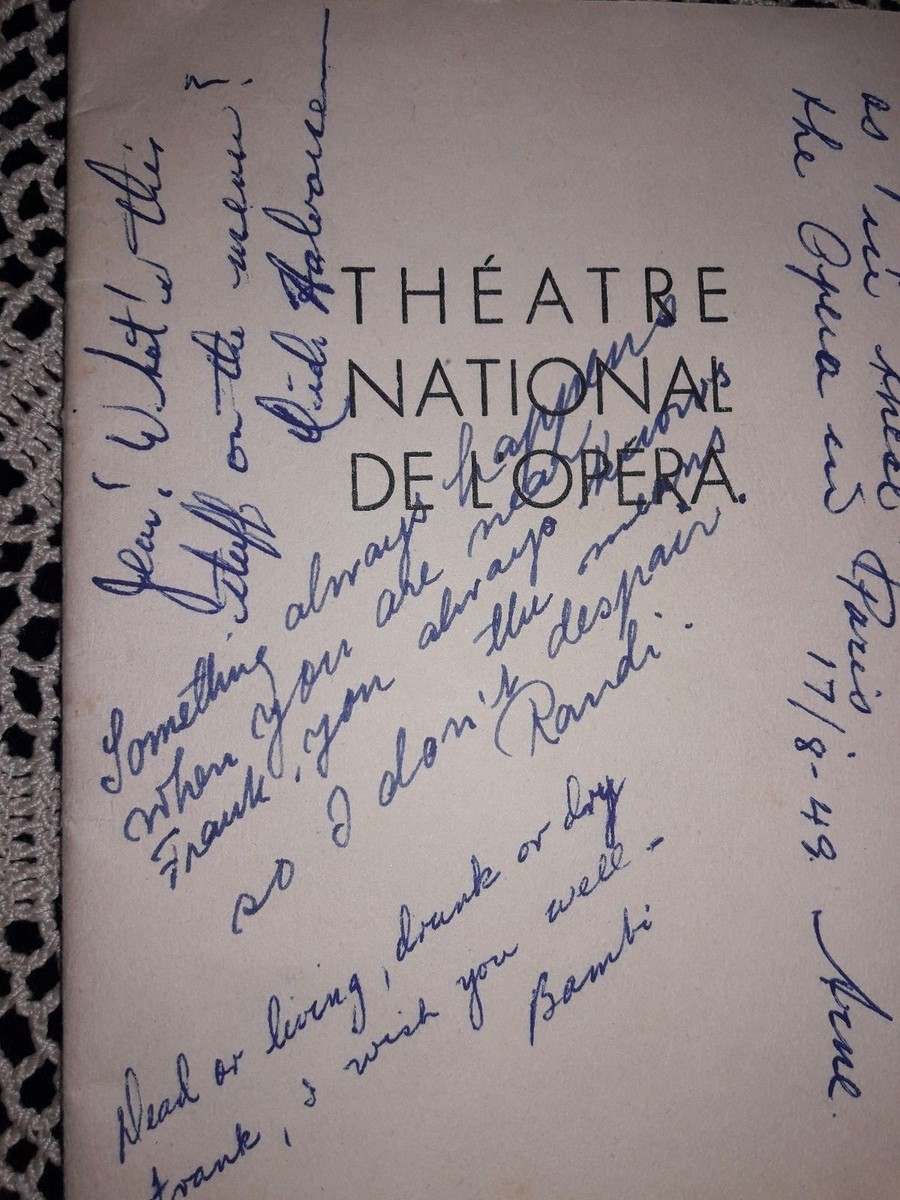 THÉATRE
NATIONAL
DE L'OPÉRA.
Jean! What's this
stuff on the menu?
Halvorsen
Something always happens
when you are near
Frank, you always know
the menus
so I don't despair.
Randi.
Dead or living, drunk or dry
Frank, I wish you well-
Bambi
as in these
the Opera in Paris
17/8-49. Arne.